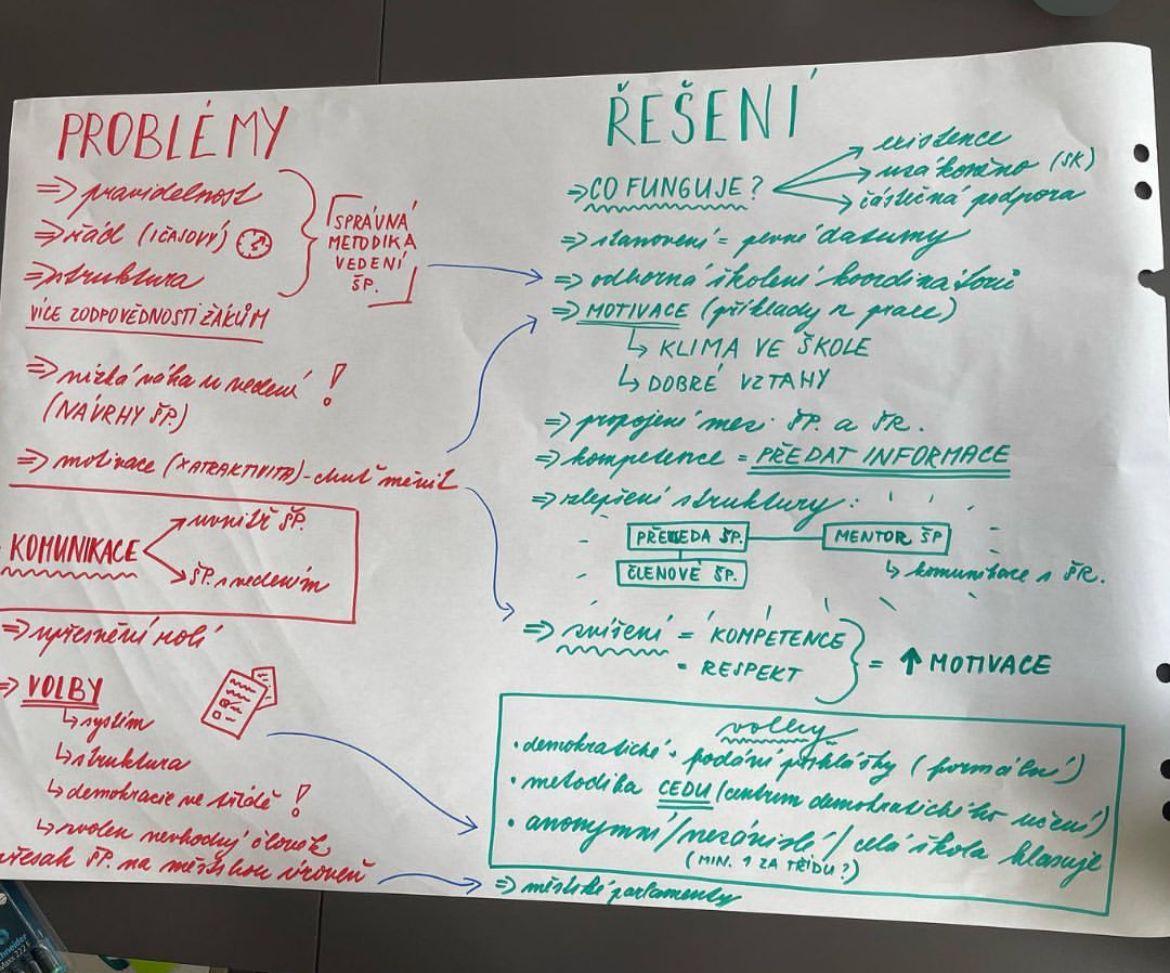 PROBLÉMY
⇒ pravidelnost
⇒ řád (1ČASOVÝ)
⇒ struktura
SPRÁVNÁ
METODIKA
VEDENÍ
ŠP.
VÍCE ZODPOVĚDNOSTI ŽÁKŮM
⇒ nízká váha u vedení !
(NÁVRHY ŠP.)
⇒ motivace (XATRAKTIVITA) - chuť měnit
KOMUNIKACE
uvnitř ŠP.
ŠP. s vedením
⇒ upřesnění rolí
⇒ VOLBY
↳ systém
↳ struktura
↳ demokracie ve třídě !
↳ zvolen nevhodný člověk
přesah ŠP. na městskou úroveň
ŘEŠENÍ
⇒ CO FUNGUJE?
existence
uzákoněno (SK)
částečná podpora
⇒ stanovení = pevné datumy
⇒ odborná školení koordinátorů
⇒ MOTIVACE (příklady z praxe)
↳ KLIMA VE ŠKOLE
↳ DOBRÉ VZTAHY
⇒ propojení mezi ŠP. a ŠR.
⇒ kompetence = PŘEDAT INFORMACE
⇒ zlepšení struktury:
PŘEDSEDA ŠP.
MENTOR ŠP
ČLENOVÉ ŠP.
↳ komunikace s ŠR.
⇒ zvýšení = KOMPETENCE
= RESPEKT
= ↑ MOTIVACE
volby
• demokratické - podání přihlášky (formální)
• metodika CEDU (centrum demokratického učení)
• anonymní/nezávislé/celá škola hlasuje
(MIN. 1 ZA TŘÍDU?)
⇒ městské parlamenty